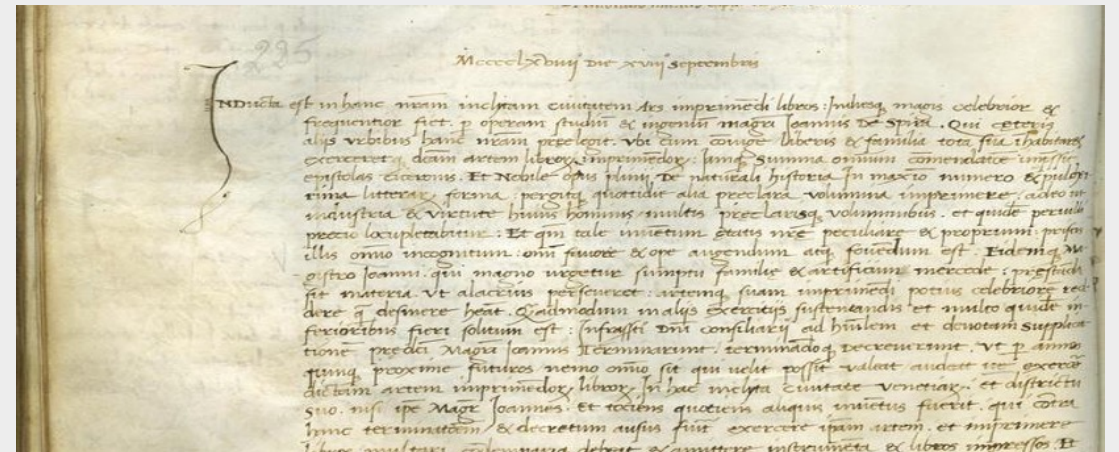 225
Mcccclxviiij die xviij Septembris
INDucta est in hanc nram inclitam ciuitatem Ars imprimēdi libros: Indiesq magis celebrior &
frequentior fiet. p operam studiū & ingeniū magri Ioannis De Spira. Qui ceteris
aliis vrbibus hanc nram prelegit. vbi cum coniuge liberis & familia tota sua inhabitaret
exerceretq dcam artem libroꝝ imprimendoꝝ: Iamq summa omium comendatione impssit
epistolas Ciceronis. Et Nobile opus plinij De naturali historia In maxīo numero & pulcri
rima litteraꝝ forma: pergitq quottidie alia preclara volumina imprimere. adeo ut
industria & virtute huius hominis multis preclarisq voluminibus. et quidē perutili
precio locupletabitur: Et qm tale inuētum etatis nre peculiare & proprium: priscis
illis omīo incognitum: omni fauore & ope augendum atq fouēdum est. Eidemq Ma
gistro Ioanni. qui magno urgetur sumptu familie & artificum mercede: prestādi
sit materia. Vt alacrius perseueret: artemq suam imprimēdi potius celebriorē red
dere q desinere heat. Quadmodum in aliis exercitiis sustentandis et multo quidē in
ferioribus fieri solitum est: Infrassti Dnī consiliarij ad humlem et deuotam supplica
tionē predci Magri Ioannis Terminarunt. terminādoq Decreuerunt. Vt p annos
quinq proxime futuros nemo omīo sit qui uelit possit ualeat audeat ue exercē
dictam artem imprimēdoꝝ libroꝝ In hac inclita ciuitate venetiaꝝ. et districtu
suo. nisi ipe Magr Ioannes. Et tociens quociens aliquis inuētus fuerit. qui contra
hanc terminatōem & decretum ausus fuit exercere ipam artem. et imprimere
libros multari condemnariq debeat & amittere instrumēta & libros impressos. Et